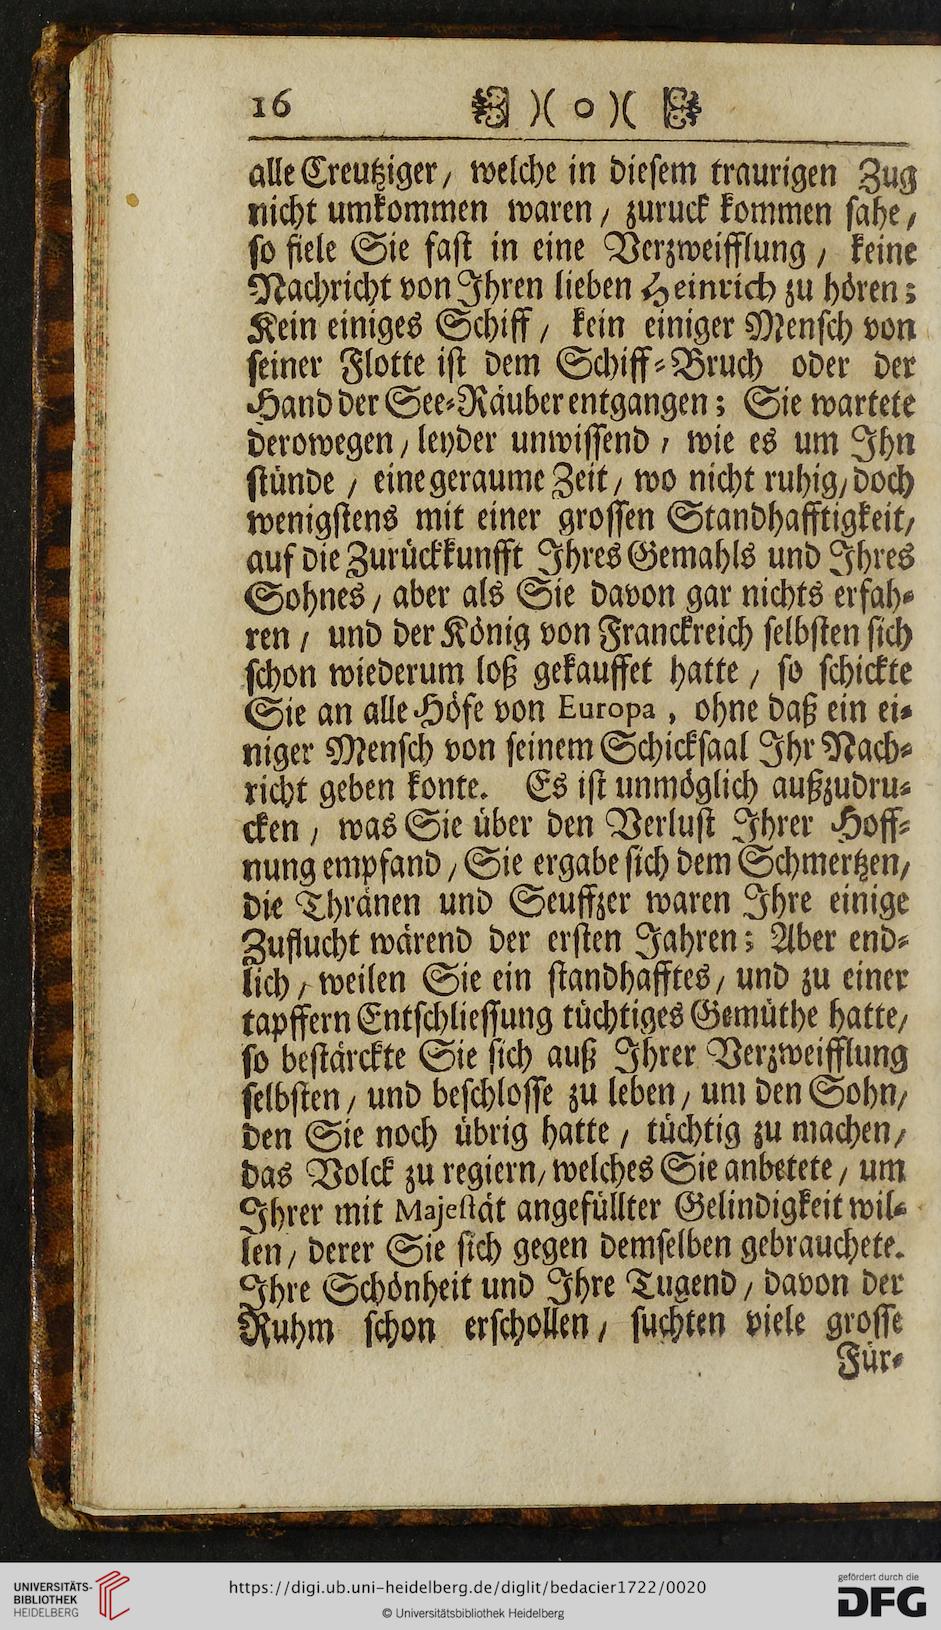 16 )( o )(
alle Creutziger, welche in diesem traurigen Zug
nicht umkommen waren, zuruck kommen sahe,
so fiele Sie fast in eine Verzweifflung, keine
Nachricht von Ihren lieben Heinrich zu hören;
Kein einiges Schiff, kein einiger Mensch von
seiner Flotte ist dem Schiff-Bruch oder der
Hand der See-Räuber entgangen; Sie wartete
derowegen, leyder unwissend, wie es um Ihn
stünde, eine geraume Zeit, wo nicht ruhig, doch
wenigstens mit einer grossen Standhafftigkeit,
auf die Zurückkunfft Ihres Gemahls und Ihres
Sohnes, aber als Sie davon gar nichts erfah-
ren, und der König von Franckreich selbsten sich
schon wiederum loß gekauffet hatte, so schickte
Sie an alle Höfe von Europa, ohne daß ein ei-
niger Mensch von seinem Schicksaal Ihr Nach-
richt geben konte. Es ist unmöglich außzudru-
cken, was Sie über den Verlust Ihrer Hoff-
nung empfand, Sie ergabe sich dem Schmertzen,
die Thränen und Seuffzer waren Ihre einige
Zuflucht wärend der ersten Jahren; Aber end-
lich, weilen Sie ein standhafftes, und zu einer
tapffern Entschliessung tüchtiges Gemüthe hatte,
so bestärckte Sie sich auß Ihrer Verzweifflung
selbsten, und beschlosse zu leben, um den Sohn,
den Sie noch übrig hatte, tüchtig zu machen,
das Volck zu regiern, welches Sie anbetete, um
Ihrer mit Majestät angefüllter Gelindigkeit wil-
len, derer Sie sich gegen demselben gebrauchete.
Ihre Schönheit und Ihre Tugend, davon der
Ruhm schon erschollen, suchten viele grosse
Für-
UNIVERSITÄTS-
BIBLIOTHEK
HEIDELBERG
https://digi.ub.uni-heidelberg.de/diglit/bedacier1722/0020
© Universitätsbibliothek Heidelberg
gefördert durch die
DFG